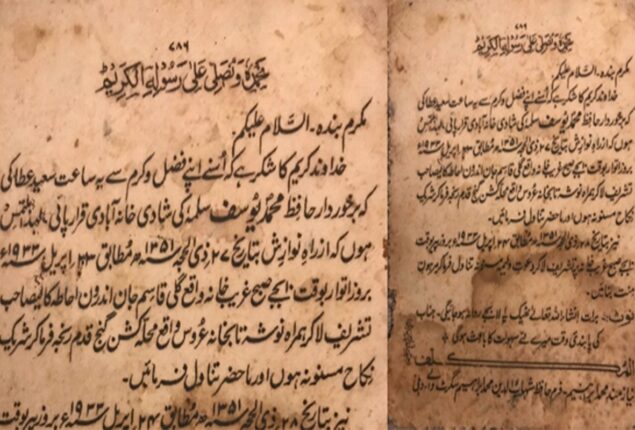 ۷۸۶
نحمدہ ونصلی علیٰ رسولہ الکریم
مکرم بندہ۔ السلام علیکم۔
خداوند کریم کا شکر ہے کہ اُسنے اپنے فضل و کرم سے یہ ساعت سعید عطا کی
کہ برخوردار حافظ محمد یوسف سلمہٗ کی شادی خانہ آبادی قرار پائی۔ لہذا ملتمس
ہوں کہ ازراہ نوازش بتاریخ ۲۷ ذی الحجہ ۱۳۵۱ھ مطابق ۲۳ اپریل ۱۹۳۳ء
بروز اتوار بوقت بجے صبح غریب خانہ واقع گلی قاسم جان اندرون احاطہ کالیصاحب
تشریف لا کر ہمراہ نوشہ تا بخانہ عروس واقع محلہ کشن گنج قدم رنجہ فرما کر شریک
نکاح مسنونہ ہوں اور ماحضر تناول فرمائیں۔
نیز بتاریخ ۲۸ ذی الحجہ ۱۳۵۱ھ مطابق ۲۴ اپریل ۱۹۳۳ء بروز پیر بوقت
۷۸۶
نحمدہ ونصلی علیٰ رسولہ الکریم
مکرم بندہ۔ السلام علیکم۔
خداوند کریم کا شکر ہے کہ اُسنے اپنے فضل و کرم سے یہ ساعت سعید عطا کی
کہ برخوردار حافظ محمد یوسف سلمہٗ کی شادی خانہ آبادی قرار پائی۔ لہذا ملتمس
ہوں کہ ازراہ نوازش بتاریخ ۲۷ ذی الحجہ ۱۳۵۱ھ مطابق ۲۳ اپریل ۱۹۳۳ء
بروز اتوار بوقت بجے صبح غریب خانہ واقع گلی قاسم جان اندرون احاطہ کالیصاحب
تشریف لا کر ہمراہ نوشہ تا بخانہ عروس واقع محلہ کشن گنج قدم رنجہ فرما کر شریک
نکاح مسنونہ ہوں اور ماحضر تناول فرمائیں۔
نیز بتاریخ ۲۸ ذی الحجہ ۱۳۵۱ھ مطابق ۲۴ اپریل ۱۹۳۳ء بروز پیر بوقت
بجے صبح غریب خانہ پر تشریف لا کر دعوت ولیمہ مسنونہ تناول فرما کر مرہون
منت بنائیں۔
نوٹ:۔ برات انشاء اللہ تعالیٰ ٹھیک بجے روانہ ہو جائیگی۔ جناب
کی پابندی وقت میرے لئے سہولت کا باعث ہوگی
نیازمند محمد ابراہیم۔ فرم حافظ شہاب الدین محمد ابراہیم سگرٹ والے دہلی